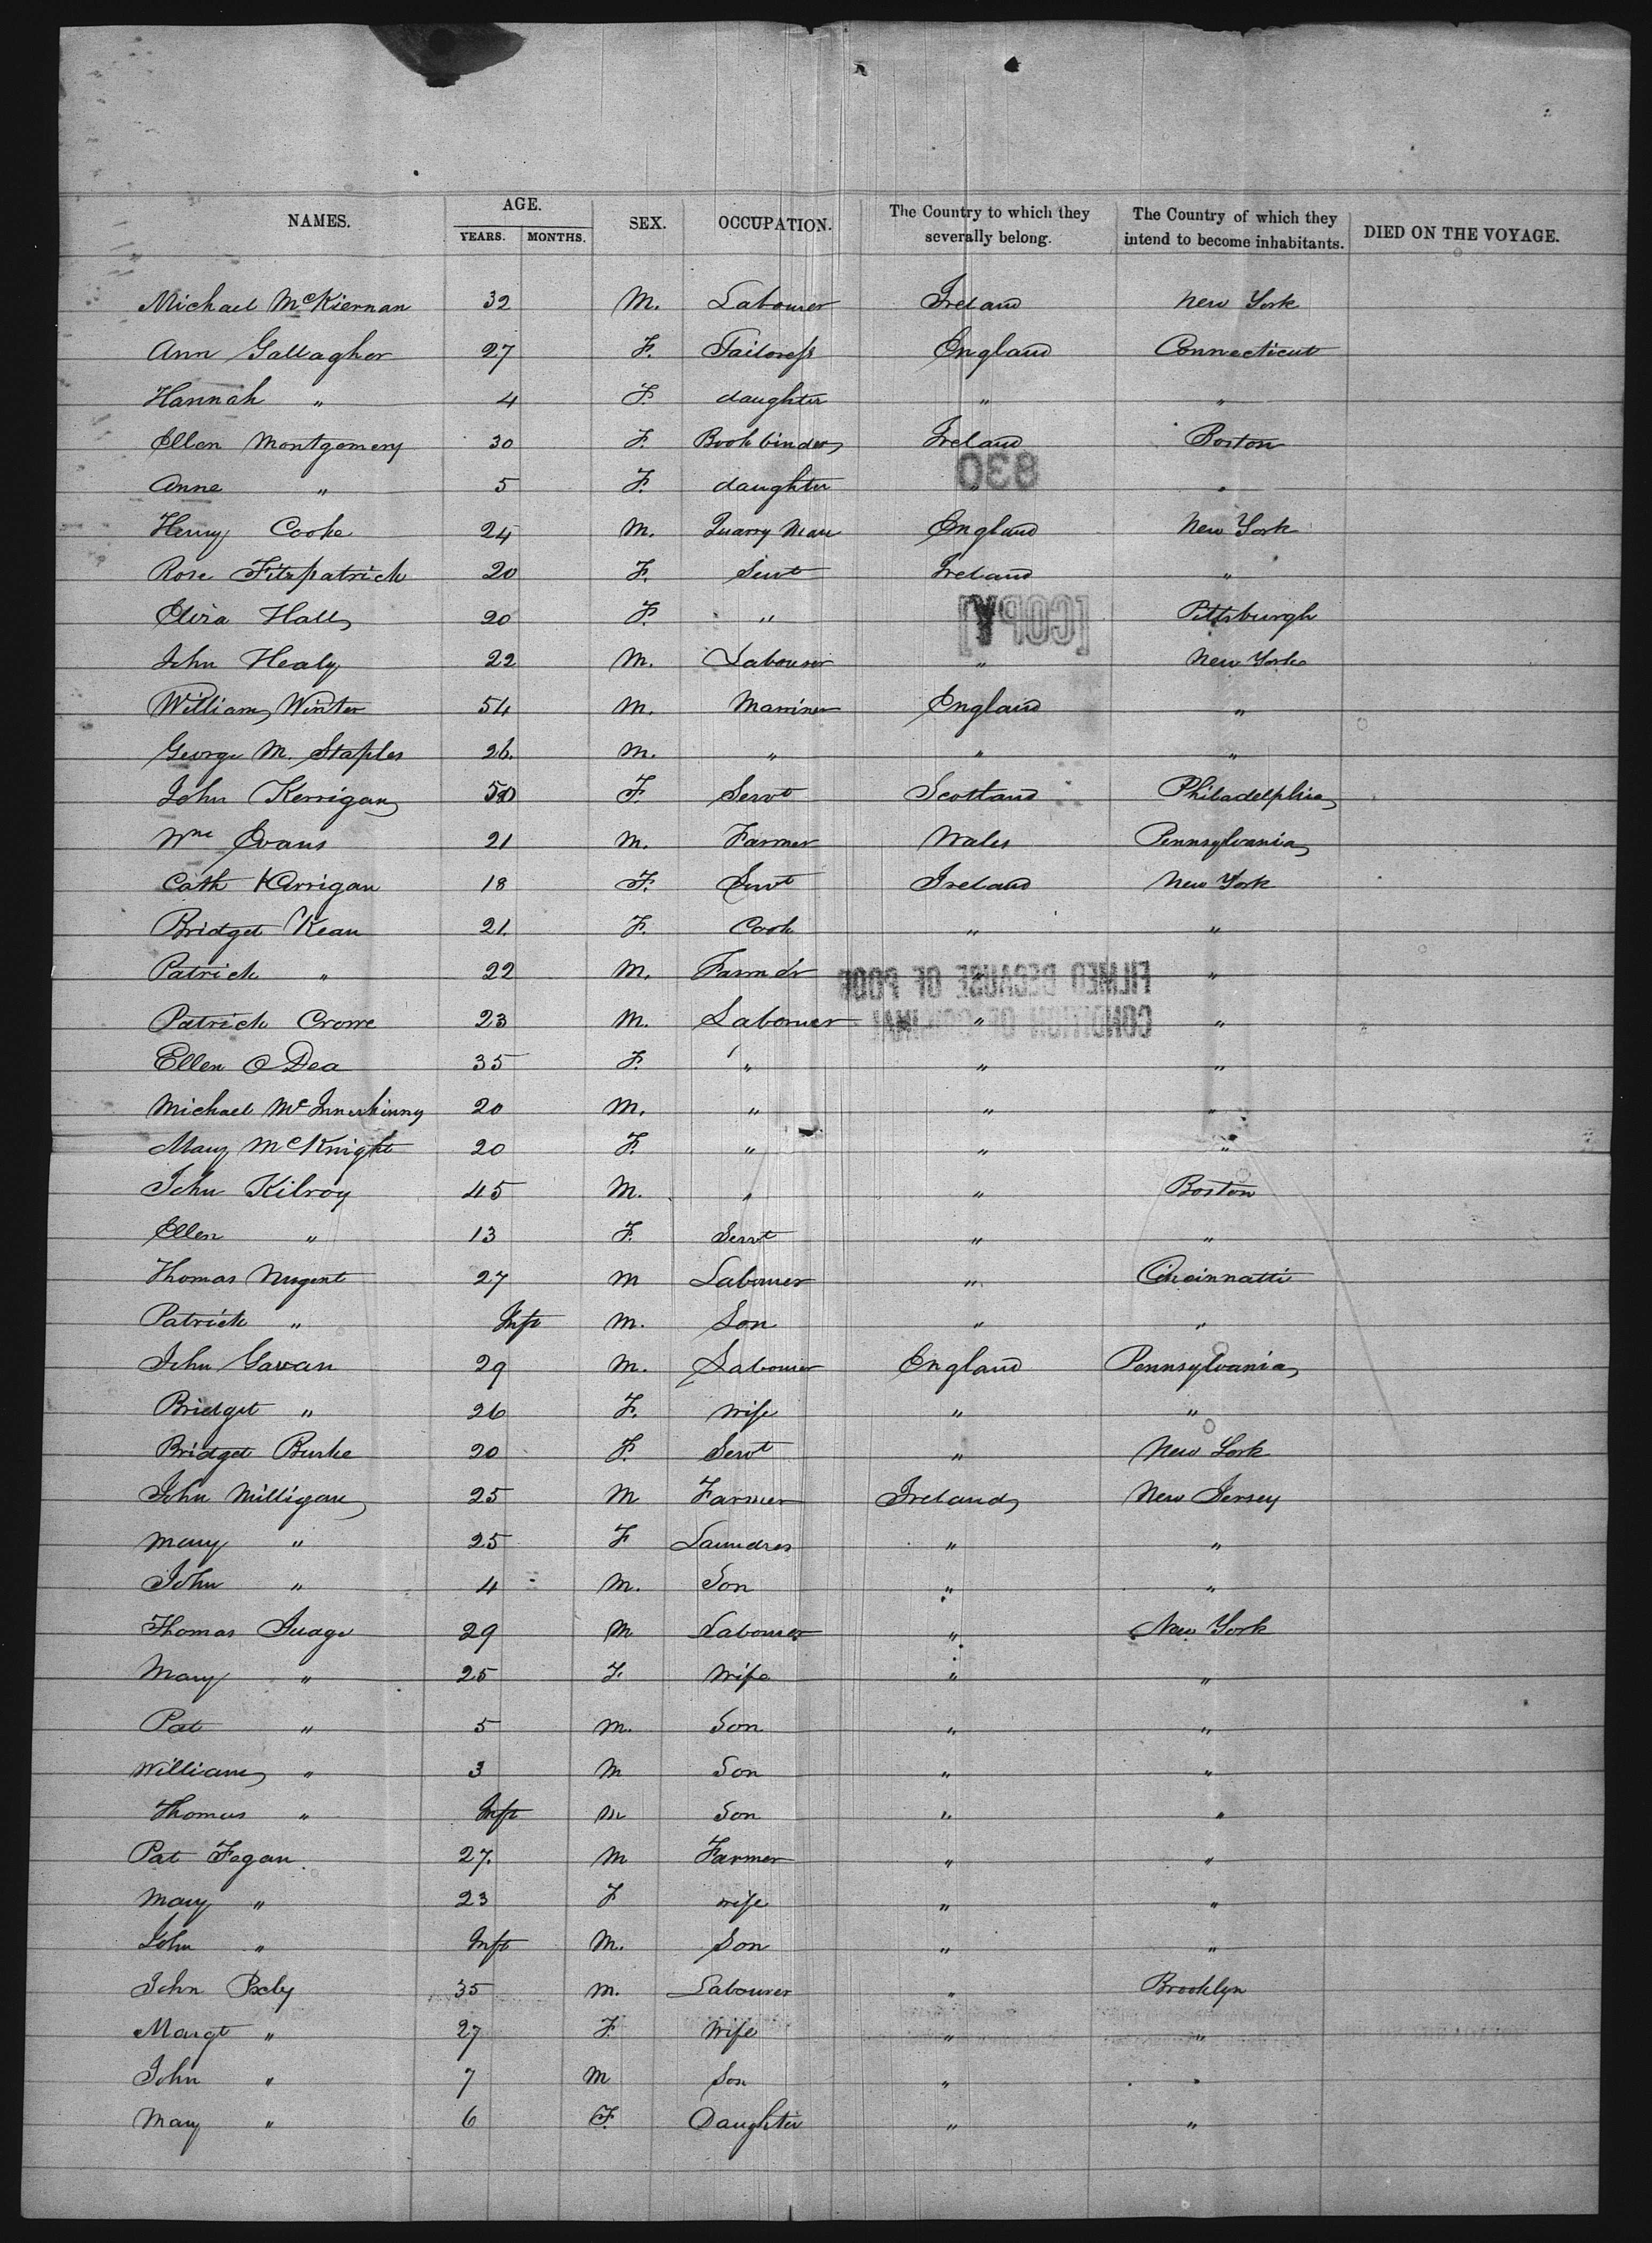 NAMES. AGE. YEARS. MONTHS. SEX. OCCUPATION. The Country to which they severally belong. The Country of which they intend to become inhabitants. DIED ON THE VOYAGE.
Michael McKiernan 32 M. Labourer Ireland New York
Ann Gallagher 27 F. Tailoress England Connecticut
Hannah " 4 F. daughter " "
Ellen Montgomery 30 F. Bookbinder Ireland Boston
830
Anne " 5 F. daughter " "
Henry Cooke 24 M. Quarry Man England New York
Rose Fitzpatrick 20 F. Servt Ireland "
[COPY]
Eliza Hall 20 F. " Pittsburgh
John Healy 22 M. Labourer " New York
William Winter 54 M. Marriner England "
George M. Staples 26. M. " " "
John Kerrigan F. Servt Scotland Philadelphia
Wm Evans 21 M. Farmer Wales Pennsylvania
Cath Karrigan 18 F. Servt Ireland New York
Bridget Kean 21. F. Cook " "
Patrick " 22 M. Farmer " "
FILMED BECAUSE OF POOR
CONDITION OF ORIGINAL
Patrick Crowe 23 M. Labourer " "
Ellen O Dea 35 F. " " "
Michael Mc 20 M. " " "
Mary McKnight 20 F. " " "
John Kilroy 45 M. " " Boston
Ellen " 13 F. Servt " "
Thomas Nugent 27 M Labourer " Cincinnatti
Patrick " Inft M. Son " "
John Gavan 29 M. Labourer England Pennsylvania
Bridget " 26 F. Wife " "
Bridget Burke 20 F. Servt " New York
John Milligan 25 M Farmer Ireland New Jersey
Mary " 25 F Laundres " "
John " 4 M. Son " "
Thomas 29 M Labourer " New York
Mary " 25 F. Wife " "
Pat " 5 M. Son " "
William " 3 M Son " "
Thomas " Inft M Son " "
Pat Fegan 27. M Farmer " "
Mary " 23 F wife " "
John " Inft M. Son " "
John 35 M. Labourer " Brooklyn
Margt " 27 F. Wife " "
John " 7 M Son " "
Mary " 6 F. Daughter " "